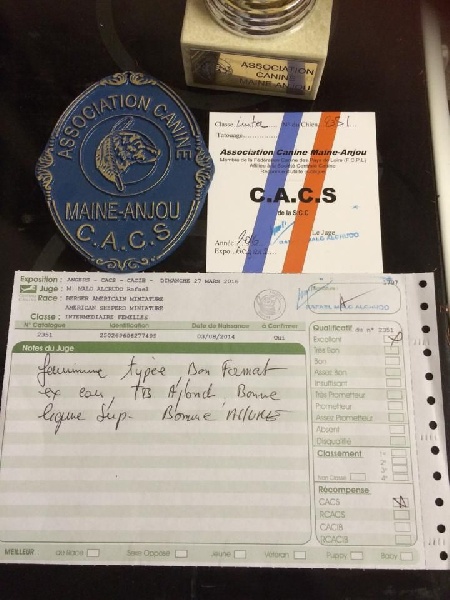 ASSOCIATION CANINE
MAINE-ANJOU
C.A.C.S
ASSOCIATION
CANINE
MAINE-ANJOU
Classe Inter N° du Chien 2351
Tatouage
Association Canine Maine-Anjou
Membre de la Fédération Canine des Pays de Loire
C.A.C.S
de la S.C.C
Le Juge
Année 2016
Expo
Exposition : ANGERS - CACS - CACIB - DIMANCHE 27 MARS 2016
Juge : M. MALO ALCRUDO Rafael
Race : BERGER AMERICAIN MINIATURE
AMERICAN SHEPERD MINIATURE
Classe : INTERMEDIAIRE FEMELLES
N° Catalogue Date de Naissance à Confirmer
2351 03/08/2014 Oui
RAFAEL MALO ALCRUDO
Notes du Juge
femme typée Bon Format
ex cou, TB Aplomb Bonne
ligne sup. Bonne ALLURE
Qualificatif du n° 2351
Excellent
Très Bon
Bon
Assez Bon
Insuffisant
Très Prometteur
Prometteur
Assez Prometteur
Absent
Disqualifié
Classement
Non Classé
Récompense
CACS
RCACS
CACIB
RCACIB
MEILLEUR de Race Sexe Opposé Jeune Vétéran Puppy Baby